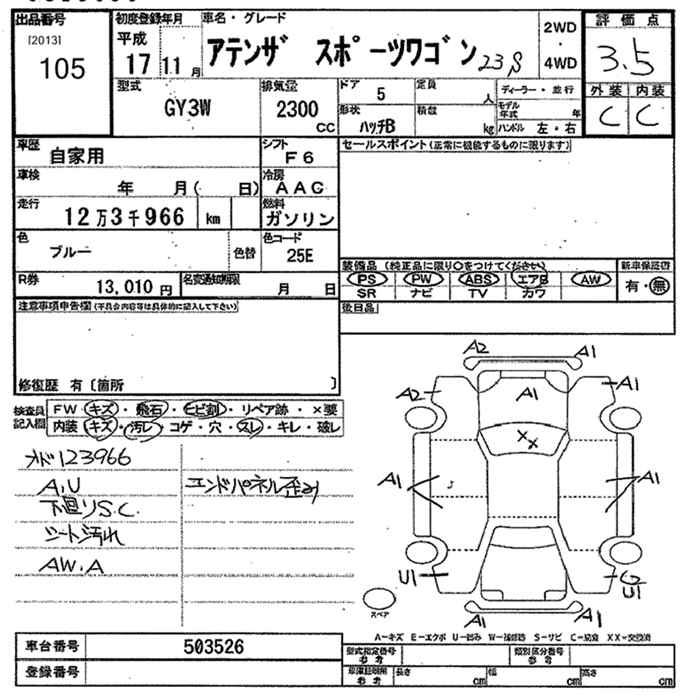 出品番号
[2013]
105
初度登録年月
平成
17 11 月
車名・グレード
アテンザ スポーツワゴン 23S
2WD
・
4WD
評価点
3.5
外装 内装
C C
型式
GY3W
排気量
2300
CC
ドア
5
定員
人
形状
ハッチB
積載
kg
ディーラー・並行
モデル年式
年
ハンドル 左・右
車歴
自家用
シフト
F6
車検
年 月( 日)
冷房
AAC
走行
12万3千966 km
燃料
ガソリン
色
ブルー
色替
色コード
25E
R券
13,010 円
名変通知期限
月 日
セールスポイント(正常に機能するものに限ります)
装備品(純正品に限り○をつけてください)
PS PW ABS エアB AW
SR ナビ TV カワ
新車保証書
有・無
後日品
注意事項申告欄(不具合内容等は具体的に記入して下さい)
修復歴 有〔箇所 〕
検査員記入欄
FW キズ・飛石・ヒビ割・リペア跡・×要
内装 キズ・汚レ・コゲ・穴・スレ・キレ・破レ
オド123966
A,U
下廻りS.C.
シート汚れ
AW.A
エンドパネル歪み
A2 A1
A2 A1 A1
XX
A1 A1
U1 C2
U1
A1 A1
スペア
A―キズ E―エクボ U―凹み W―補修跡 S―サビ C―腐食 XX―交換済
車台番号
503526
登録番号
型式指定番号
参考
類別区分番号
参考
車庫証明用
参考
長さ cm
幅 cm
高さ cm